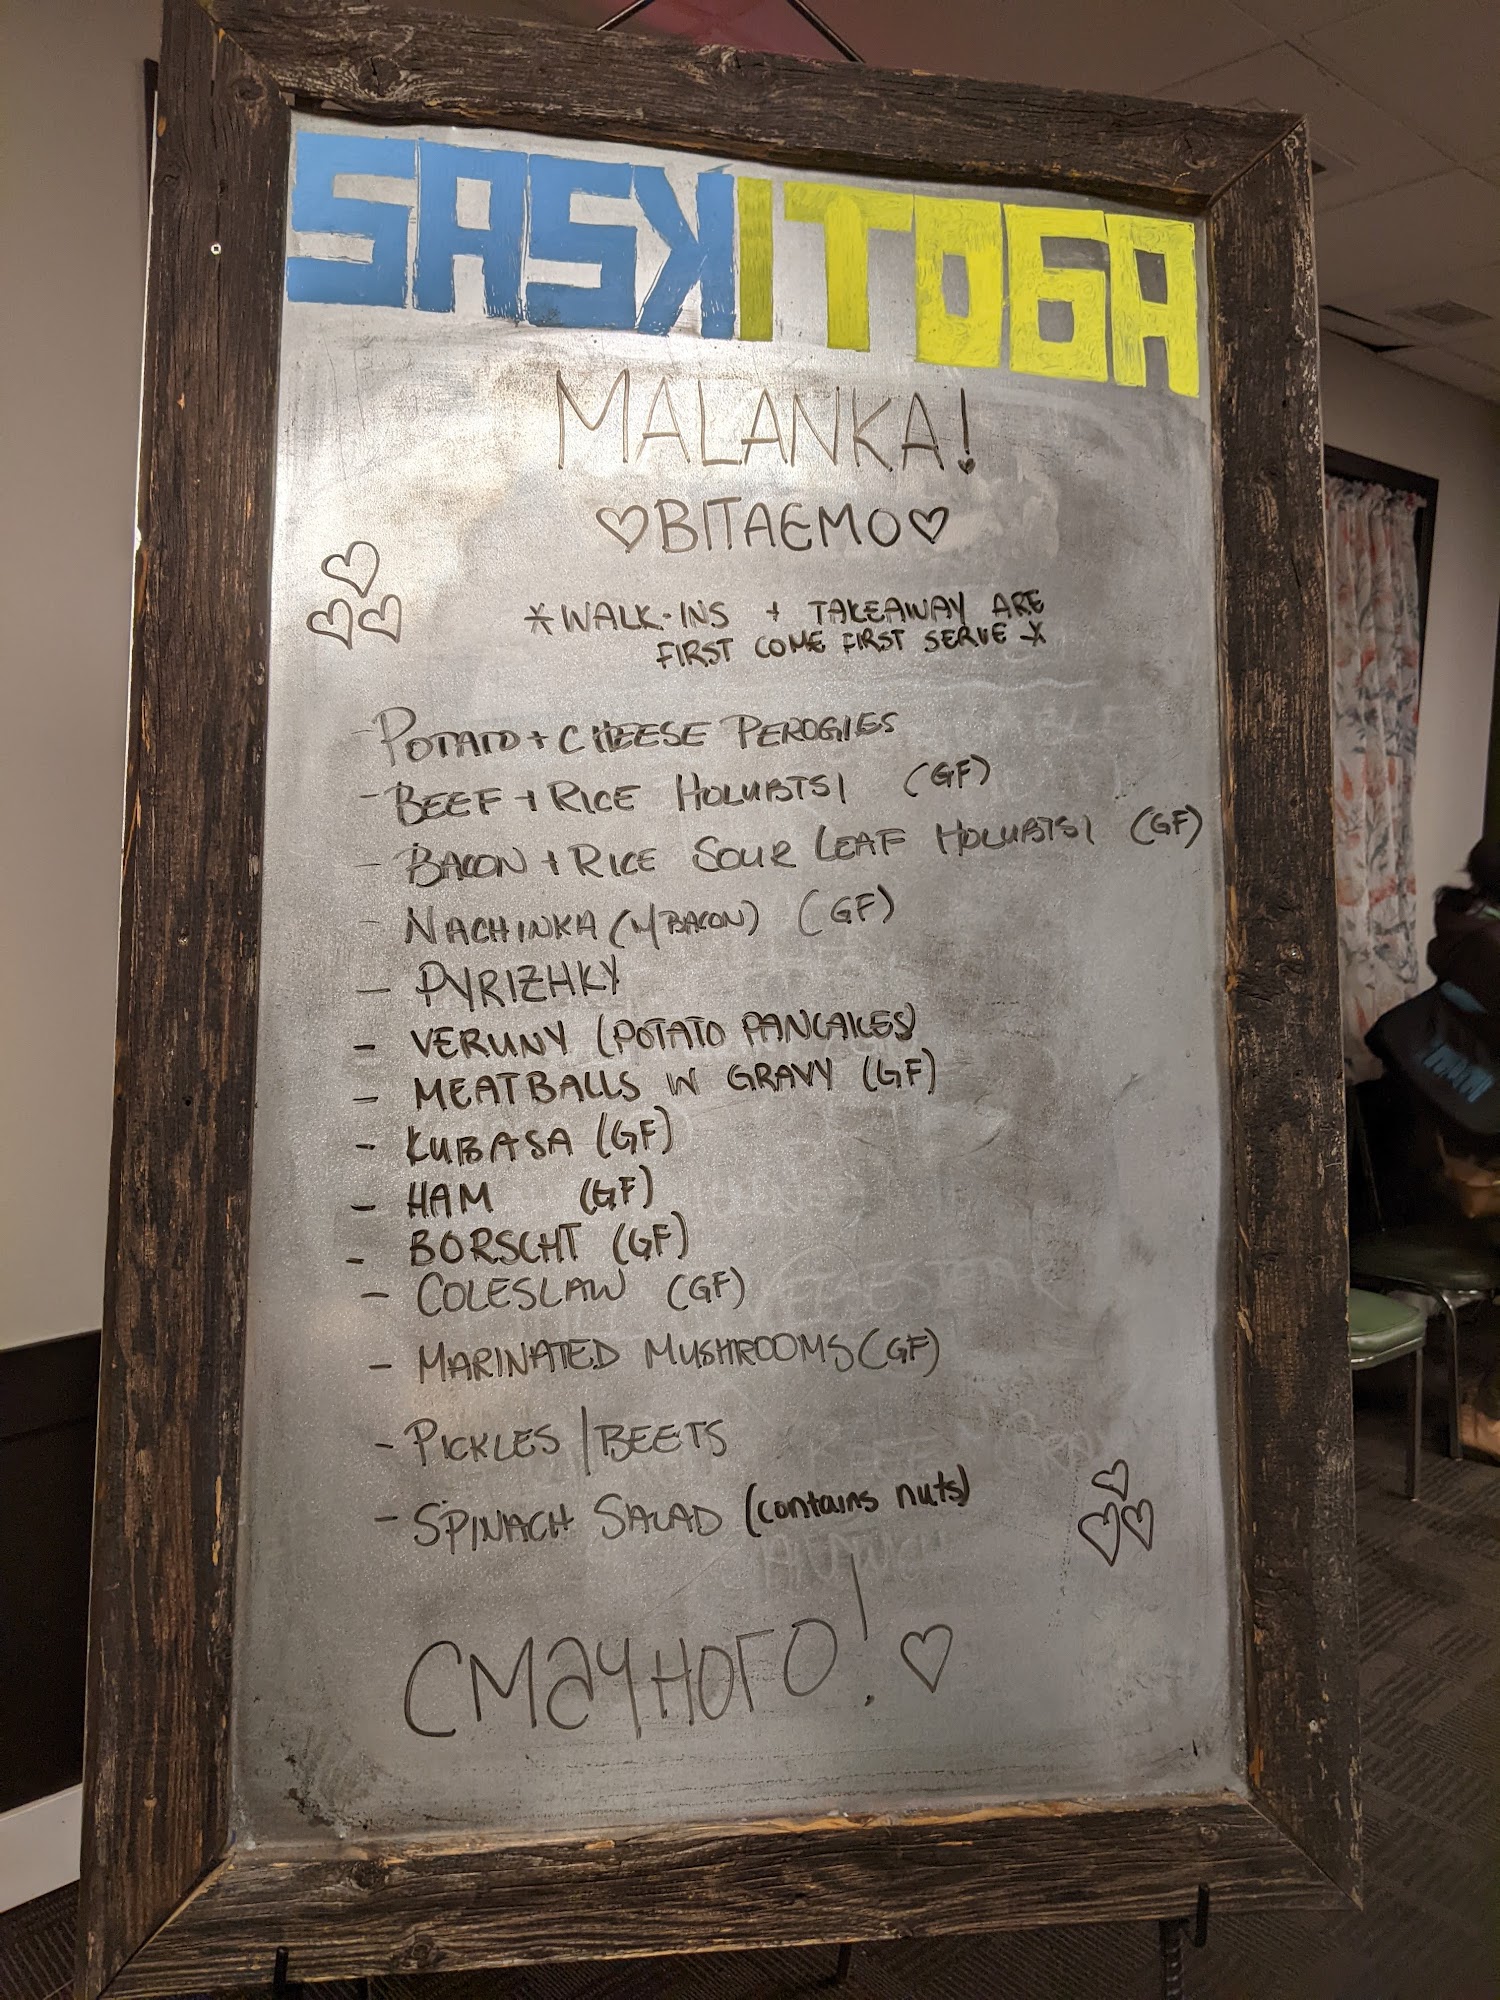 SASKITOBA
MALANKA!
♡ВІТАЄМО♡
*WALK-INS + TAKEAWAY ARE
FIRST COME FIRST SERVE *
- POTATO + CHEESE PEROGIES
- BEEF + RICE HOLUBTSI (GF)
- BACON + RICE SOUR LEAF HOLUBTSI (GF)
- NACHINKA (W/BACON) (GF)
- PYRIZHKY
- VERUNY (POTATO PANCAKES)
- MEATBALLS IN GRAVY (GF)
- KUBASA (GF)
- HAM (GF)
- BORSCHT (GF)
- COLESLAW (GF)
- MARINATED MUSHROOMS (GF)
- PICKLES / BEETS
- SPINACH SALAD (contains nuts)
Смачного! ♡